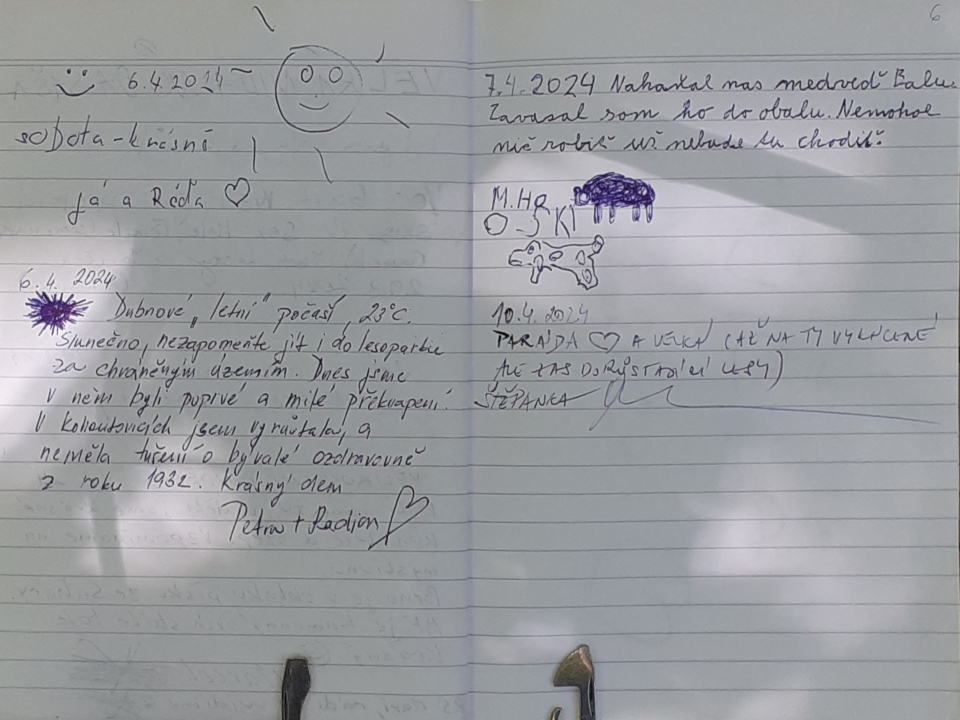 6.4.2024
sobota - krásní
Já a Ráďa
6.4. 2024
Dubnové „letní" počasí, 23°C.
Slunečno, nezapomeňte jít i do lesoparku
za chráněným územím. Dnes jsme
v něm byli poprvé a milé překvapení.
V Kohoutovicích jsem vyrůstala, a
neměla tušení o bývalé ozdravovně
z roku 1932. Krásný den
Petra + Radion
6
7.4.2024 Nahaňal nas medveď Balu.
Zaviazal som ho do obalu. Nemohol
nič robiť už nebude tu chodiť.
M.Ho
O-SKI
10.4.2024
PARÁDA A VELKÁ (AŽ NA TY VYKÁCENÉ
ALE ZAS DORŮSTAJÍCÍ LESY)
ŠTĚPÁNKA